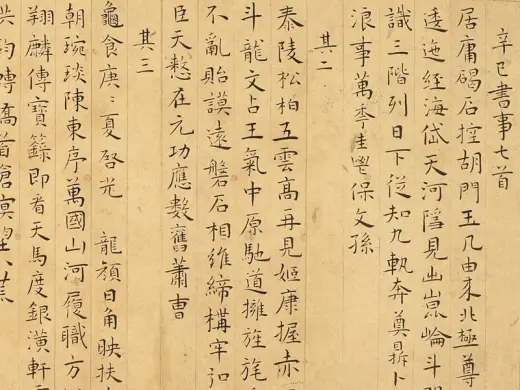 辛巳書事七首
居庸碣石控胡門王几由來北極尊
逶迤經海岱天河隱見出崑崙斗
識三階列日下從知九軌奔奠鼎卜
浪事萬季圭鬯保文孫
其二
泰陵松柏五雲高再見姬康握赤
斗龍文占王氣中原馳道擁旌旄
不亂貽謨遠磐石相維締構牢
臣天憖在元功應數舊蕭曹
其三
龜食庚〻夏啓光 龍顏日角映扶
朝琬琰陳東序萬國山河履職方
翔麟傳寶籙即看天馬度銀潢軒
鈞轉首蒼冥望八荒